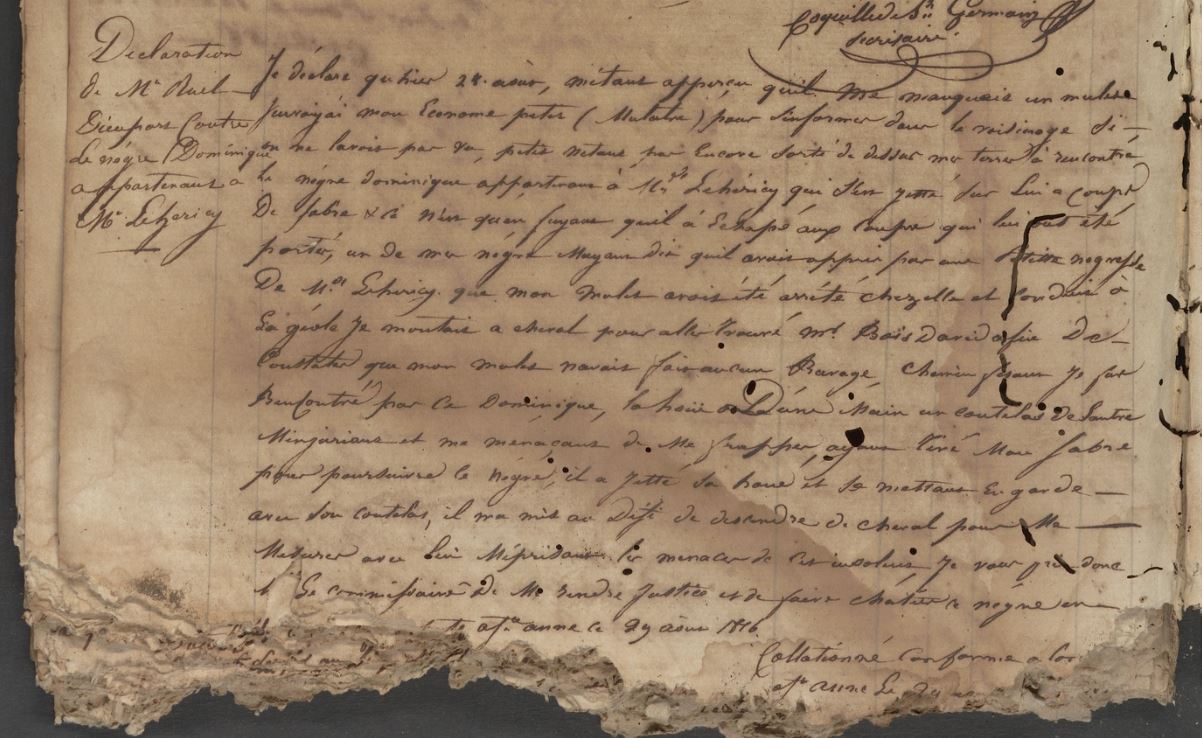 Coquille de St. Germain
secrétaire
Déclaration
de Mr Ruel
Dieupart Contre
Le négre Dominique
appartenant à
Mr Lehericy
Je déclare qu'hier 28. août, m'étant apperçu quil me manquait un mulet
J'envoyai mon Econome petit (Mulatre) pour s'informer dans le voisinage si
on ne lavoit pas vu, petit n'étant pas Encore sorti de dessus mes terres à rencontré
Le négre dominique appartenant à Lehéricy qui s'est jetté sur lui a coups
De sabre & ce n'est qu'en fuyant quil à échapé aux coups qui lui ont été
portés, un de mes négres Mayant dit quil avait appris par une petitte negresse
De Lehéricy que mon mulet avait été arrété chez elle et conduit à
La géole Je montais a cheval pour aller trouvé mr. Bois David afin De
Constater que mon mulet navait fait aucun Ravage, chemin fesant Je fus
Rencontré par Ce Dominique, la houe D'une Main un coutelas de lautre
M'injuriant et me menaçant de Me frapper, ayant tiré Mon sabre
pour poursuivre le négre, il a jetté sa houe et se mettant En garde
avec son coutelas, il ma mis au Défi de descendre de cheval pour Me
Mesurer avec lui Méprisant les menaces de cet insolent, Je vous prie donc
Le commissaire De Me rendre Justice et de faire chatier ce négre en
ste anne le 29 août 1816
Collationné Conforme a
ste anne Le